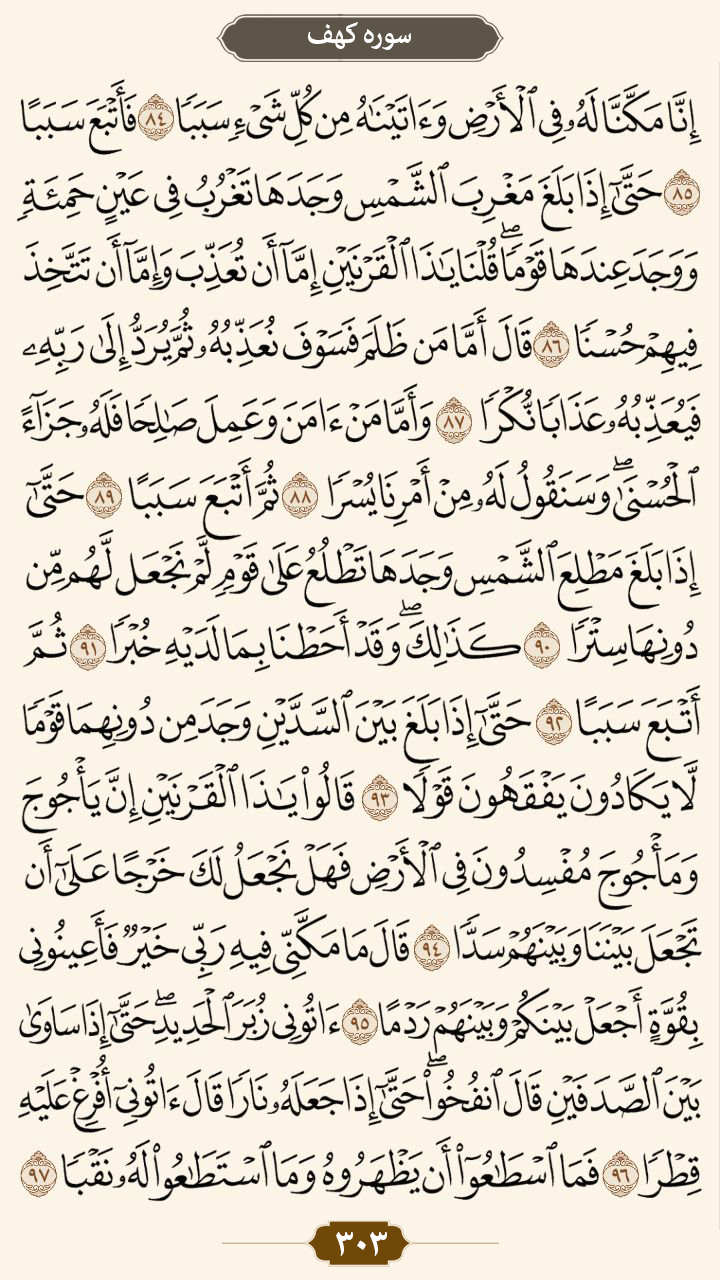 سوره کهف
إِنَّا مَكَّنَّا لَهُۥ فِي ٱلْأَرْضِ وَءَاتَيْنَٰهُ مِن كُلِّ شَيْءٍ سَبَبًا ٨٤ فَأَتْبَعَ سَبَبًا
٨٥ حَتَّىٰٓ إِذَا بَلَغَ مَغْرِبَ ٱلشَّمْسِ وَجَدَهَا تَغْرُبُ فِي عَيْنٍ حَمِئَةٍ
وَوَجَدَ عِندَهَا قَوْمًاۖ قُلْنَا يَٰذَا ٱلْقَرْنَيْنِ إِمَّآ أَن تُعَذِّبَ وَإِمَّآ أَن تَتَّخِذَ
فِيهِمْ حُسْنًا ٨٦ قَالَ أَمَّا مَن ظَلَمَ فَسَوْفَ نُعَذِّبُهُۥ ثُمَّ يُرَدُّ إِلَىٰ رَبِّهِۦ
فَيُعَذِّبُهُۥ عَذَابًا نُّكْرًا ٨٧ وَأَمَّا مَنْ ءَامَنَ وَعَمِلَ صَٰلِحًا فَلَهُۥ جَزَآءً
ٱلْحُسْنَىٰۖ وَسَنَقُولُ لَهُۥ مِنْ أَمْرِنَا يُسْرًا ٨٨ ثُمَّ أَتْبَعَ سَبَبًا ٨٩ حَتَّىٰٓ
إِذَا بَلَغَ مَطْلِعَ ٱلشَّمْسِ وَجَدَهَا تَطْلُعُ عَلَىٰ قَوْمٍ لَّمْ نَجْعَل لَّهُم مِّن
دُونِهَا سِتْرًا ٩٠ كَذَٰلِكَۖ وَقَدْ أَحَطْنَا بِمَا لَدَيْهِ خُبْرًا ٩١ ثُمَّ
أَتْبَعَ سَبَبًا ٩٢ حَتَّىٰٓ إِذَا بَلَغَ بَيْنَ ٱلسَّدَّيْنِ وَجَدَ مِن دُونِهِمَا قَوْمًا
لَّا يَكَادُونَ يَفْقَهُونَ قَوْلًا ٩٣ قَالُوا۟ يَٰذَا ٱلْقَرْنَيْنِ إِنَّ يَأْجُوجَ
وَمَأْجُوجَ مُفْسِدُونَ فِي ٱلْأَرْضِ فَهَلْ نَجْعَلُ لَكَ خَرْجًا عَلَىٰٓ أَن
تَجْعَلَ بَيْنَنَا وَبَيْنَهُمْ سَدًّا ٩٤ قَالَ مَا مَكَّنِّي فِيهِ رَبِّي خَيْرٌ فَأَعِينُونِي
بِقُوَّةٍ أَجْعَلْ بَيْنَكُمْ وَبَيْنَهُمْ رَدْمًا ٩٥ ءَاتُونِي زُبَرَ ٱلْحَدِيدِۖ حَتَّىٰٓ إِذَا سَاوَىٰ
بَيْنَ ٱلصَّدَفَيْنِ قَالَ ٱنفُخُوا۟ۖ حَتَّىٰٓ إِذَا جَعَلَهُۥ نَارًا قَالَ ءَاتُونِيٓ أُفْرِغْ عَلَيْهِ
قِطْرًا ٩٦ فَمَا ٱسْطَٰعُوٓا۟ أَن يَظْهَرُوهُ وَمَا ٱسْتَطَٰعُوا۟ لَهُۥ نَقْبًا ٩٧
٣٠٣